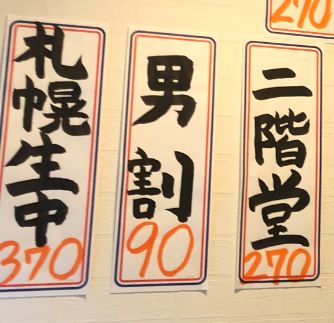 270
二階堂
270
男割
90
札幌生中
370